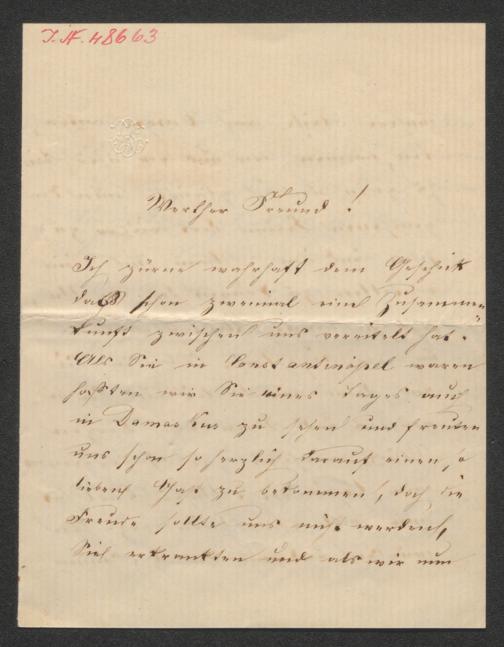 I. N. 48663
Werther Freund!
Ich zürne wahrhaft dem Geschick
daß schon zweimal eine Zusammen-
kunft zwischen uns vereitelt hat.
Als Sie in Constantinopel waren
hofften wir Sie eines Tages auch
in Damaskus zu sehen und freuten
uns schon so herzlich darauf einen so
lieben Gast zu bekommen, doch die
Freude sollte uns nicht werden,
Sie erkrankten und als wir nun